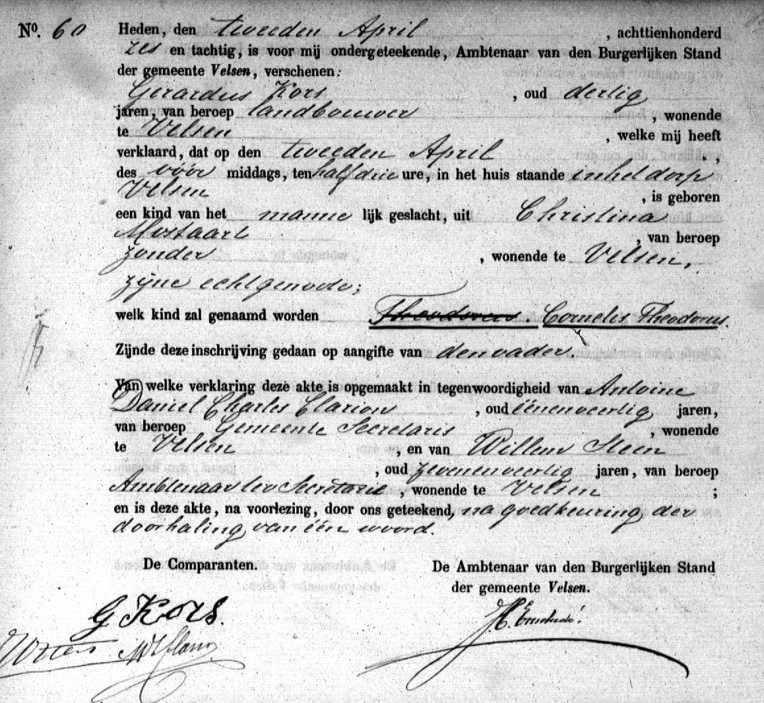 No. 60 Heden, den tweeden April, achttienhonderd
zes en tachtig, is voor mij ondergeteekende, Ambtenaar van den Burgerlijken Stand
der gemeente Velsen, verschenen:
Gerardus Kors, oud dertig
jaren, van beroep landbouwer, wonende
te Velsen, welke mij heeft
verklaard, dat op den tweeden April,
des vóór middags, ten half drie ure, in het huis staande in het dorp
Velsen, is geboren
een kind van het manne lijk geslacht, uit Christina
Mostaart, van beroep
zonder, wonende te Velsen,
zijne echtgenoote;
welk kind zal genaamd worden Theodorus. Cornelis Theodorus.
Zijnde deze inschrijving gedaan op aangifte van den vader.
Van welke verklaring deze akte is opgemaakt in tegenwoordigheid van Antoine
Daniel Charles Clarion, oud éénenveertig jaren,
van beroep Gemeente Secretaris, wonende
te Velsen, en van Willem Steen
, oud zevenenveertig jaren, van beroep
Ambtenaar ter Secretarie, wonende te Velsen;
en is deze akte, na voorlezing, door ons geteekend, na goedkeuring der
doorhaling van één woord.
De Comparanten. De Ambtenaar van den Burgerlijken Stand
der gemeente Velsen.
G Kors.